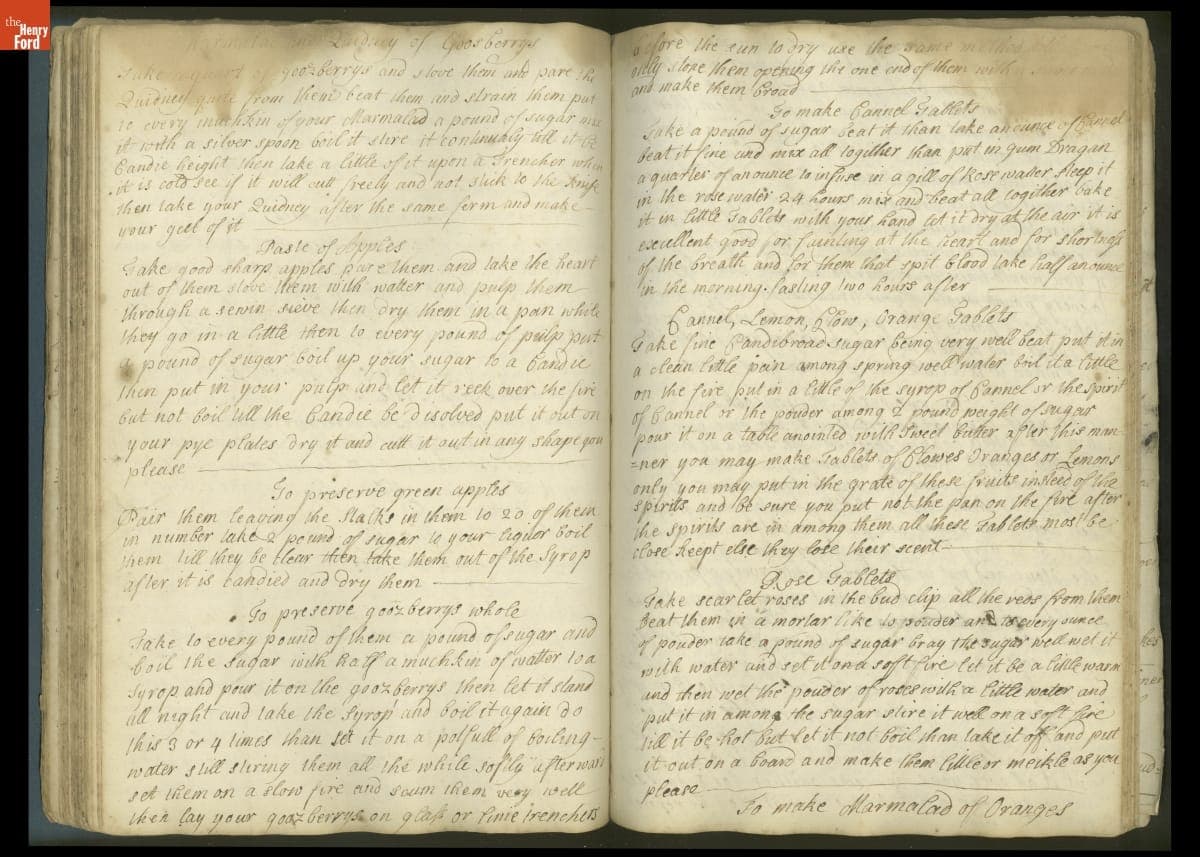 the
Henry
Ford
Marmalad and Quidney of Goosberrys
Take a quart of goozberrys and stove them and pare the
Quidney quite from them beat them and strain them put
to every muchkin of your Marmalad a pound of sugar mix
it with a silver spoon boil it stire it continualy till it be
Candie height then take a little of it upon a Trencher when
it is cold see if it will cutt freely and not stick to the knife
then take your Quidney after the same form and make
your geet of it
Paste of Apples
Take good sharp apples pare them and take the heart
out of them stove them with watter and pulp them
through a sewin sieve then dry them in a pan while
they go in a little then to every pound of pulp putt
a pound of sugar boil up your sugar to a Candie
then put in your pulp and let it reek over the fire
but not boil till the Candie be disolved put it out on
your pye plates dry it and cutt it out in any shape you
please
To preserve green apples
Pair them leaving the stalks in them to 20 of them
in number take 2 pound of sugar to your liquor boil
them till they be clear then take them out of the Syrop
after it is candied and dry them
To preserve goozberrys whole
Take to every pound of them a pound of sugar and
boil the sugar with half a muchkin of watter to a
syrop and pour it on the goozberrys then let it stand
all night and take the syrop and boil it again do
this 3 or 4 times than set it on a potfull of boiling
water still stiring them all the while softly afterward
set them on a slow fire and scum them very well
then lay your goozberrys on glass or finie trenchers
before the sun to dry use the same method
only stove them opening the one end of them with
and make them broad
To make Cannel Tablets
Take a pound of sugar beat it than take anounce of Cannel
beat it fine and mix all together than put in gum Dragan
a quarter of anounce to infuse in a gill of Rose watter steep it
in the rose water 24 hours mix and beat all togither bake
it in little Tablets with your hand let it dry at the air it is
excellent good for fainting at the heart and for shortness
of the breath and for them that spit blood take half anounce
in the morning fasting two hours after
Cannel, Lemon, Clow, Orange Tablets
Take fine Candibroad sugar being very well beat put it in
a clean little pain among spring well water boil it a little
on the fire put in a little of the syrop of Cannel or the spirit
of Cannel or the pouder among 2 pound weight of sugar
pour it on a table anointed with sweet butter after this man-
=ner you may make Tablets of Clowes Oranges or Lemons
only you may put in the grate of these fruits insteed of the
spirits and be sure you put not the pan on the fire after
the spirits are in among them all these Tablets most be
close keept else they lose their scent
Rose Tablets
Take scarlet roses in the bud clip all the reds from them
beat them in a mortar like to pouder and to every ounce
of pouder take a pound of sugar bray the sugar well wet it
with water and set it on a soft fire let it be a little warm
and then wet the pouder of roses with a little water and
put it in among the sugar stire it well on a soft fire
till it be hot but let it not boil than take it off and put
it out on a board and make them little or meikle as you
please
To make Marmalad of Oranges